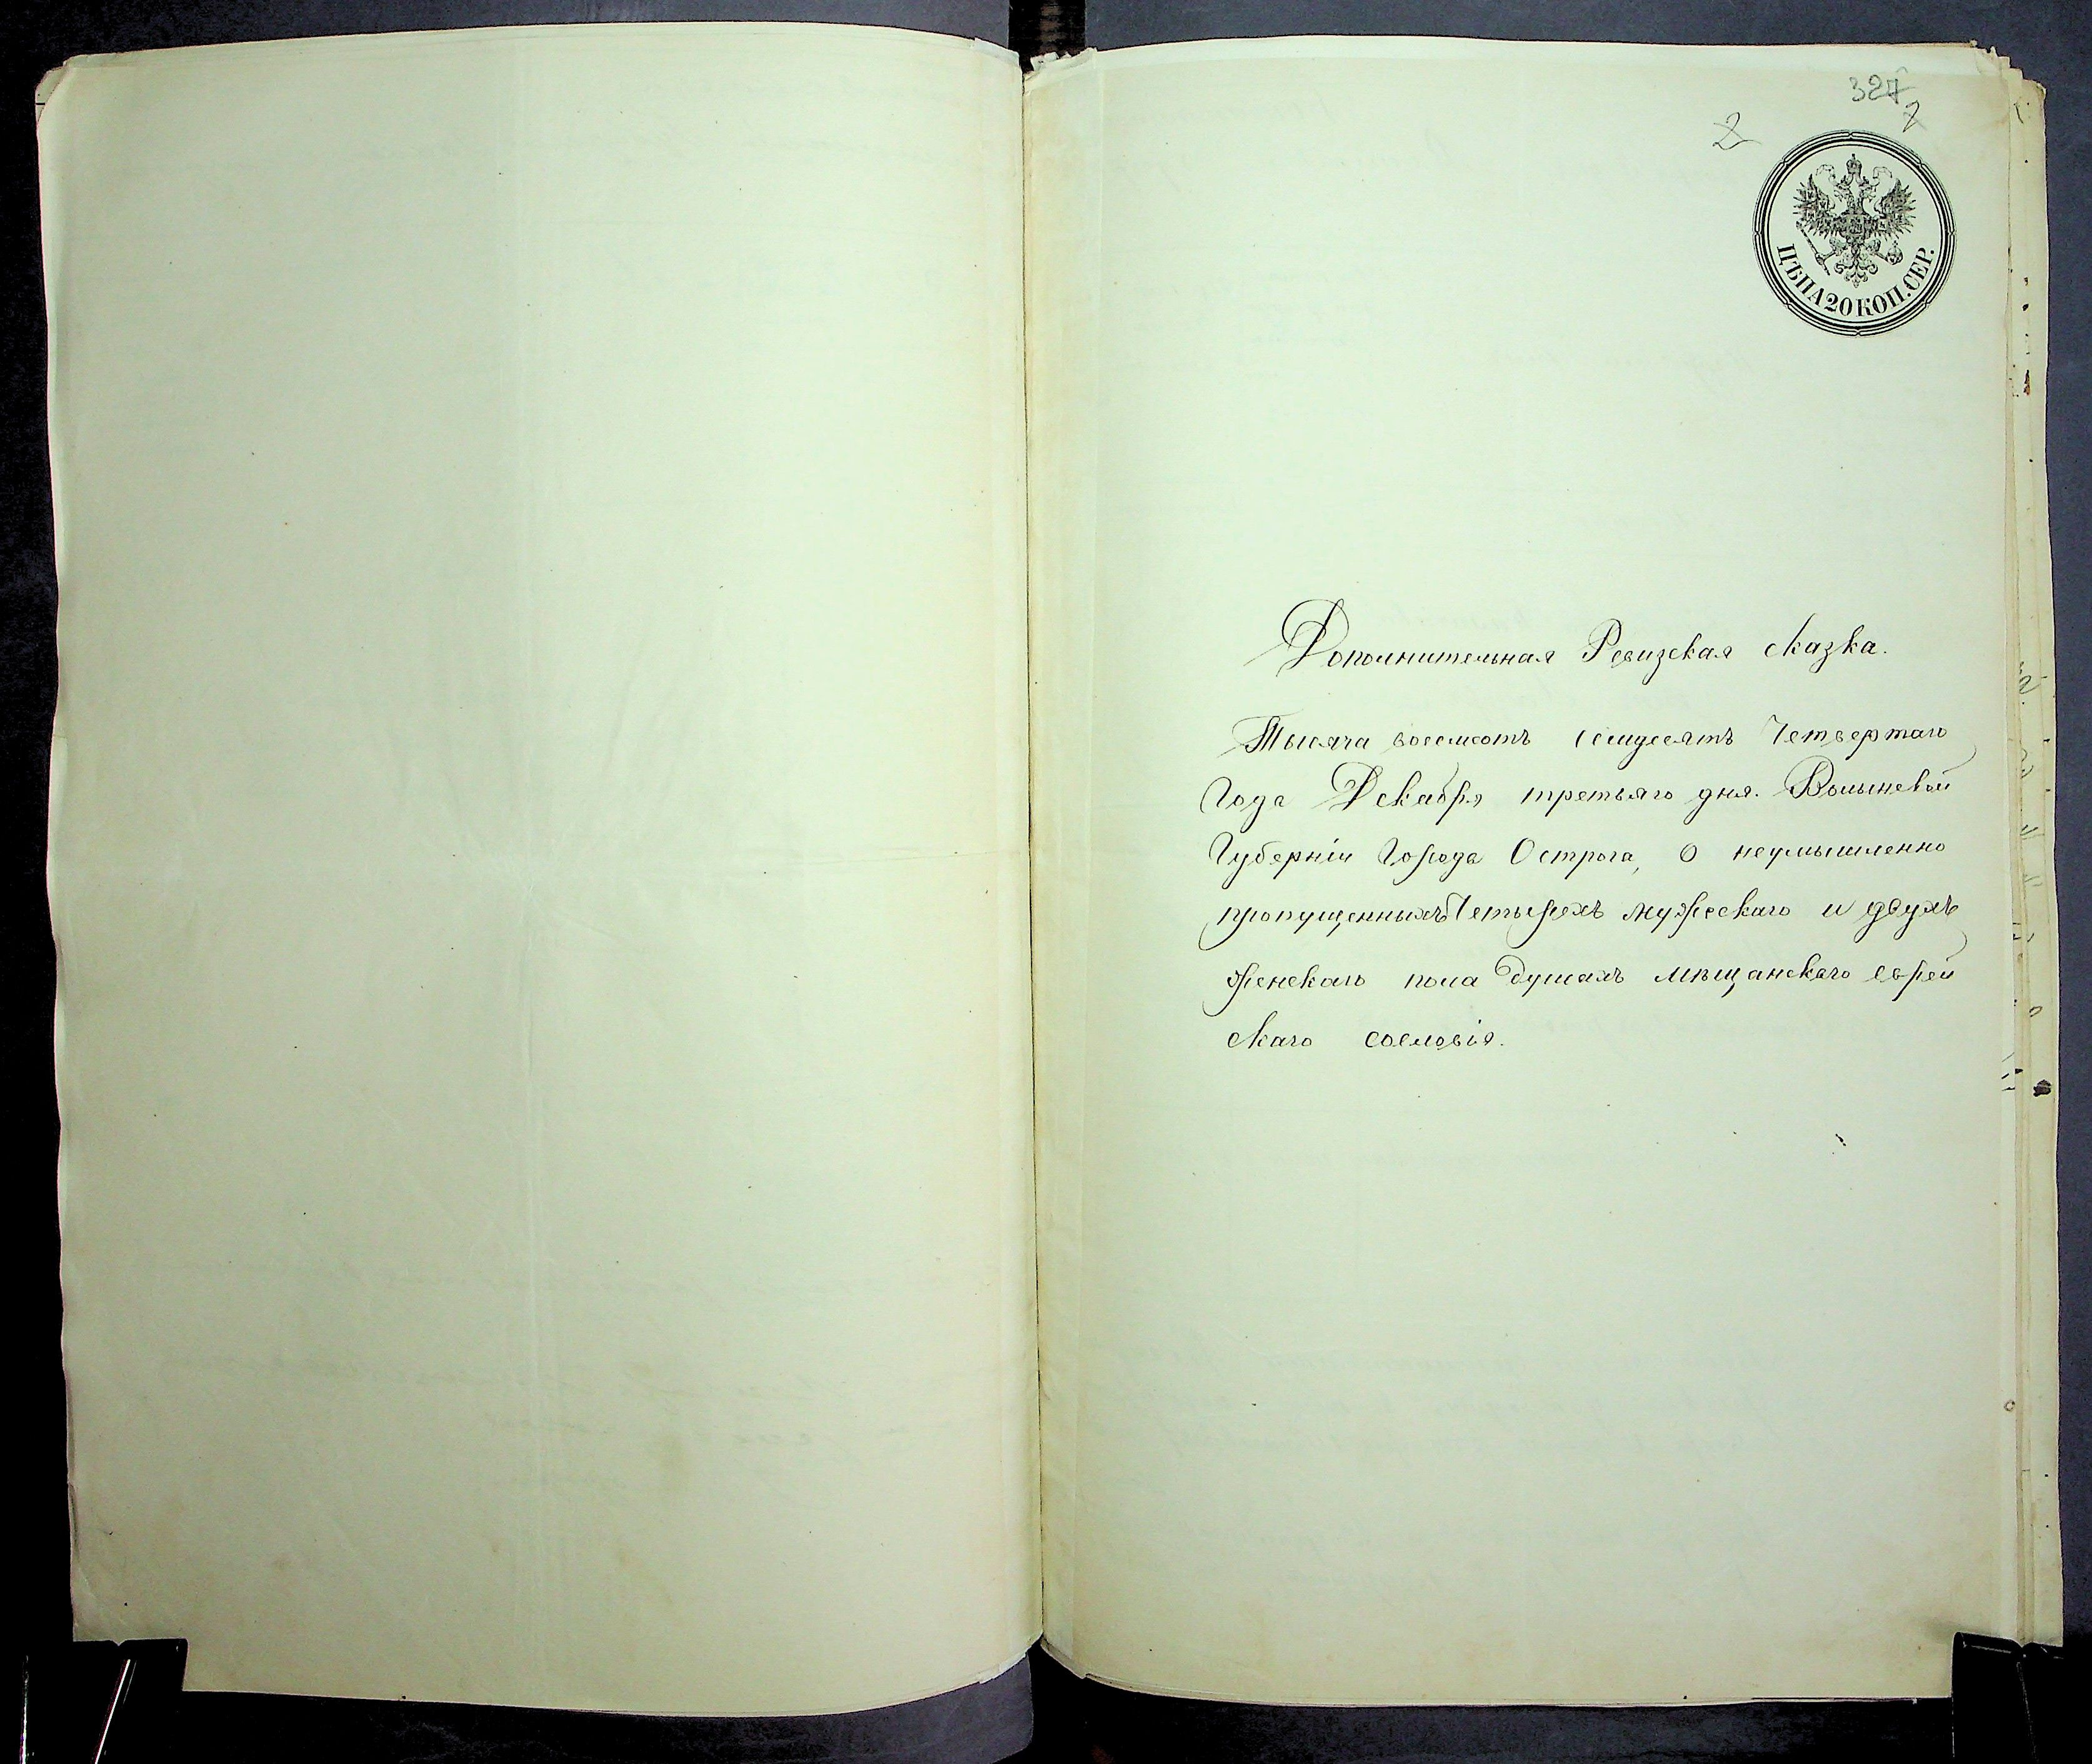 327
2
2
ЦѢНА 20 КОП. СЕР.
Дополнительная Ревизская сказка.
Тысяча восемсотъ семдесятъ Четвертаго
Года Декабря третьяго дня. Волынской
Губерніи Города Острога, О неумышленно
пропущенныхъ Четырехъ мужескаго и двухъ
женскаго пола душахъ мѣщанскаго еврей
скаго сословія.